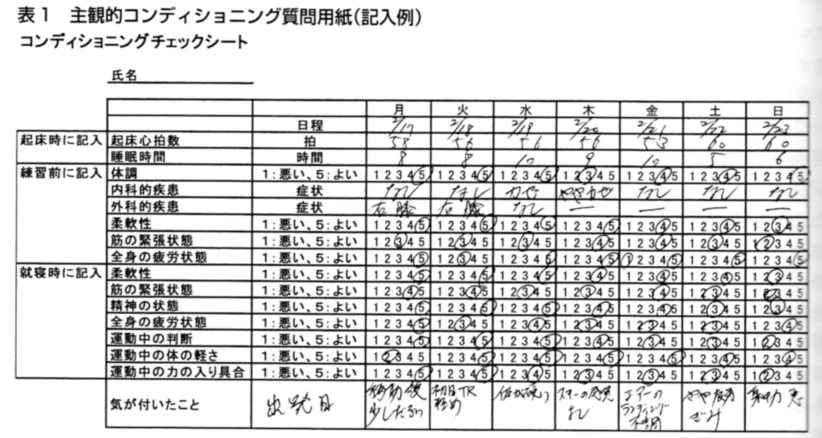 表1 主観的コンディショニング質問用紙(記入例)
コンディショニングチェックシート
氏名
月 火 水 木 金 土 日
日程 2/17 2/18 2/19 2/20 2/21 2/22 2/23
起床時に記入 起床心拍数 拍 58 56 56 56 53 60 60
睡眠時間 時間 8 8 10 9 10 5 6
練習前に記入 体調 1:悪い、5:よい 1 2 3 4 5 1 2 3 4 5 1 2 3 4 5 1 2 3 4 5 1 2 3 4 5 1 2 3 4 5 1 2 3 4 5
内科的疾患 症状 なし なし かぜ ややかぜ なし なし なし
外科的疾患 症状 右膝 右膝 なし ー ー ー ー
柔軟性 1:悪い、5:よい 1 2 3 4 5 1 2 3 4 5 1 2 3 4 5 1 2 3 4 5 1 2 3 4 5 1 2 3 4 5 1 2 3 4 5
筋の緊張状態 1:悪い、5:よい 1 2 3 4 5 1 2 3 4 5 1 2 3 4 5 1 2 3 4 5 1 2 3 4 5 1 2 3 4 5 1 2 3 4 5
全身の疲労状態 1:悪い、5:よい 1 2 3 4 5 1 2 3 4 5 1 2 3 4 5 1 2 3 4 5 1 2 3 4 5 1 2 3 4 5 1 2 3 4 5
就寝時に記入 柔軟性 1:悪い、5:よい 1 2 3 4 5 1 2 3 4 5 1 2 3 4 5 1 2 3 4 5 1 2 3 4 5 1 2 3 4 5 1 2 3 4 5
筋の緊張状態 1:悪い、5:よい 1 2 3 4 5 1 2 3 4 5 1 2 3 4 5 1 2 3 4 5 1 2 3 4 5 1 2 3 4 5 1 2 3 4 5
精神の状態 1:悪い、5:よい 1 2 3 4 5 1 2 3 4 5 1 2 3 4 5 1 2 3 4 5 1 2 3 4 5 1 2 3 4 5 1 2 3 4 5
全身の疲労状態 1:悪い、5:よい 1 2 3 4 5 1 2 3 4 5 1 2 3 4 5 1 2 3 4 5 1 2 3 4 5 1 2 3 4 5 1 2 3 4 5
運動中の判断 1:悪い、5:よい 1 2 3 4 5 1 2 3 4 5 1 2 3 4 5 1 2 3 4 5 1 2 3 4 5 1 2 3 4 5 1 2 3 4 5
運動中の体の軽さ 1:悪い、5:よい 1 2 3 4 5 1 2 3 4 5 1 2 3 4 5 1 2 3 4 5 1 2 3 4 5 1 2 3 4 5 1 2 3 4 5
運動中の力の入り具合 1:悪い、5:よい 1 2 3 4 5 1 2 3 4 5 1 2 3 4 5 1 2 3 4 5 1 2 3 4 5 1 2 3 4 5 1 2 3 4 5
気が付いたこと 出発日 移動後 少しだるい 初日TR 軽め 体が重い よし 不調 やや疲労 ぎみ 集中力 悪